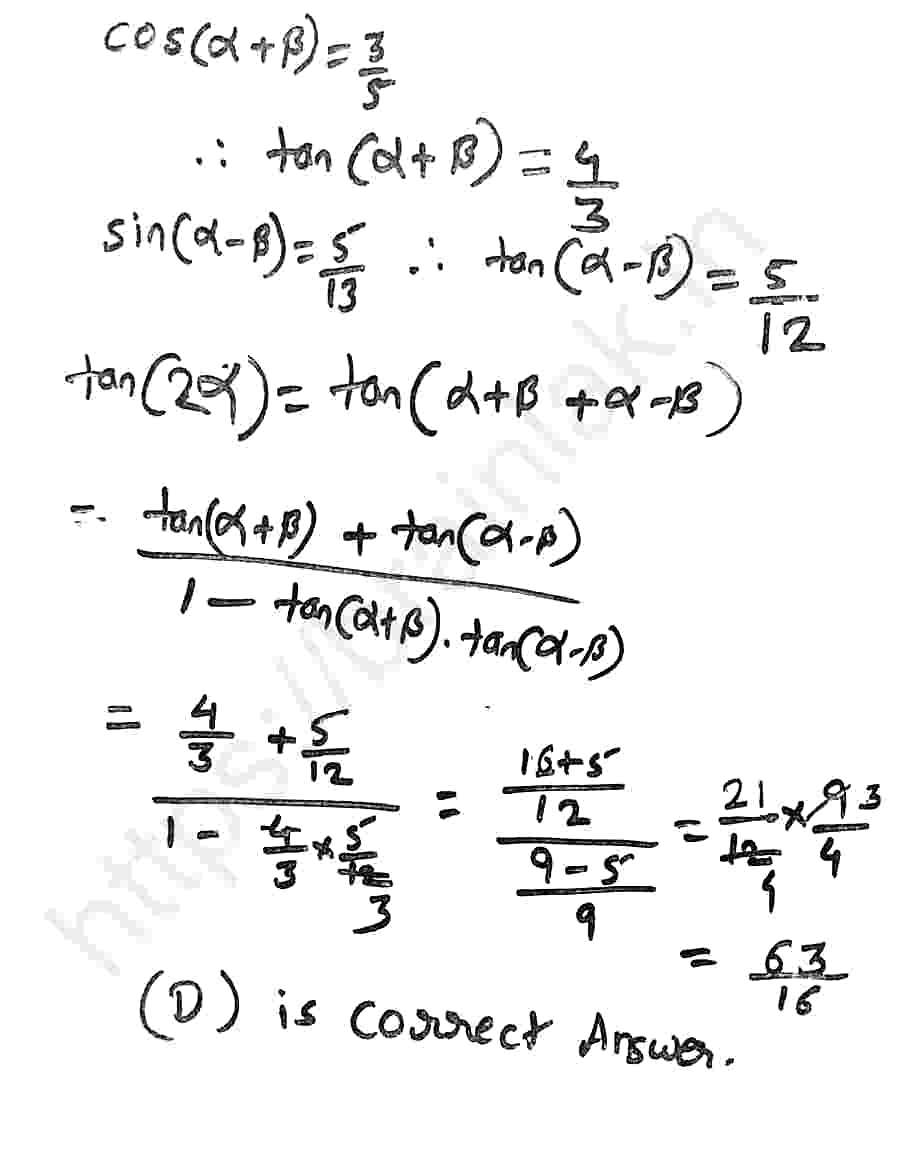 cos(α+β)=3/5
∴ tan(α+β)=4/3
sin(α-β)=5/13 ∴ tan(α-β)=5/12
tan(2α)=tan(α+β+α-β)
= (tan(α+β)+tan(α-β))/(1-tan(α+β).tan(α-β))
= (4/3+5/12)/(1-4/3×5/12 3) = ((16+5)/12)/((9-5)/9) = 21/12 4×9 3/4
= 63/16
(D) is correct Answer.